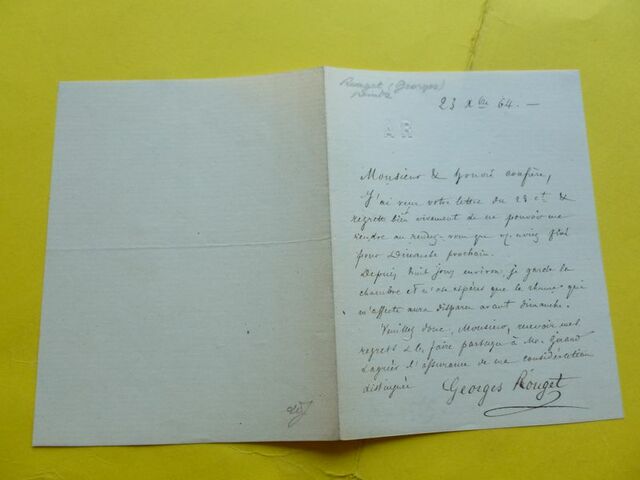 Rouget (Georges)
peintre
23 Xbre 64. —
AR
Monsieur & honoré confrère,
J'ai reçu votre lettre du 23 ct &
regrette bien vivement de ne pouvoir me
rendre au rendez-vous que vous aviez fixé
pour Dimanche prochain.
Depuis huit jours environ je garde la
chambre et n'ose espérer que le rhume qui
m'affecte aura disparu avant dimanche.
Veuillez donc, Monsieur, recevoir mes
regrets & les faire partager à Mr.
& agréer l'assurance de ma considération
distinguée
Georges Rouget